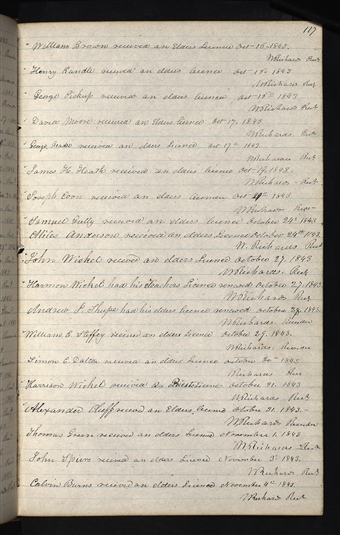 117
William Brown received an Elders Licence Oct 16 1843.
W Richards Recr
Henry Randle received an elders licence Oct 1843
W Richards Recr
George Pickup received an elders licence Oct 1843
W Richards Recr
David Moore received an Elders licence Oct 17, 1843
W Richards. Recr
George received an elders licence, oct 17th 1843
W Richards Recr
James H. Heath received an elders licence Oct 19, 1843.
W Richards - Recr
Joseph Coon received an elders licence Oct 1843
W Richards Recr
Samuel Fully received an elders licence October 24th 1843
Ollies Anderson received an elders Licence October 24th 1843
W. Richards Recr
John Wickel received an elders Licence October 27, 1843
W Richards. Recr
Harmon Wickel had his Teachers Licence renewed October 27, 1843.
W Richards Recr
Andrew J. Shupe had his elders licence renewed october 28, 1843.
W Richards. Recorder
William E. received an elders Licence october 29, 1843.
W Richards, Recorder
Simon C. Dalton received an elders licence october 30th 1843
W Richards Recr
Harrison Wickel received a Priests licence october 31. 1843
W Richards Recr
Alexander received an Elders, licence October 31. 1843.
W Richards Recorder
Thomas Green received an elders licence November 1. 1843
W Richards Recr
John Spiers received an elders licence November 3d 1843.
W Richards Recr
Calvin Burns received an elders Licence November 4th 1843.
W Richards Recr